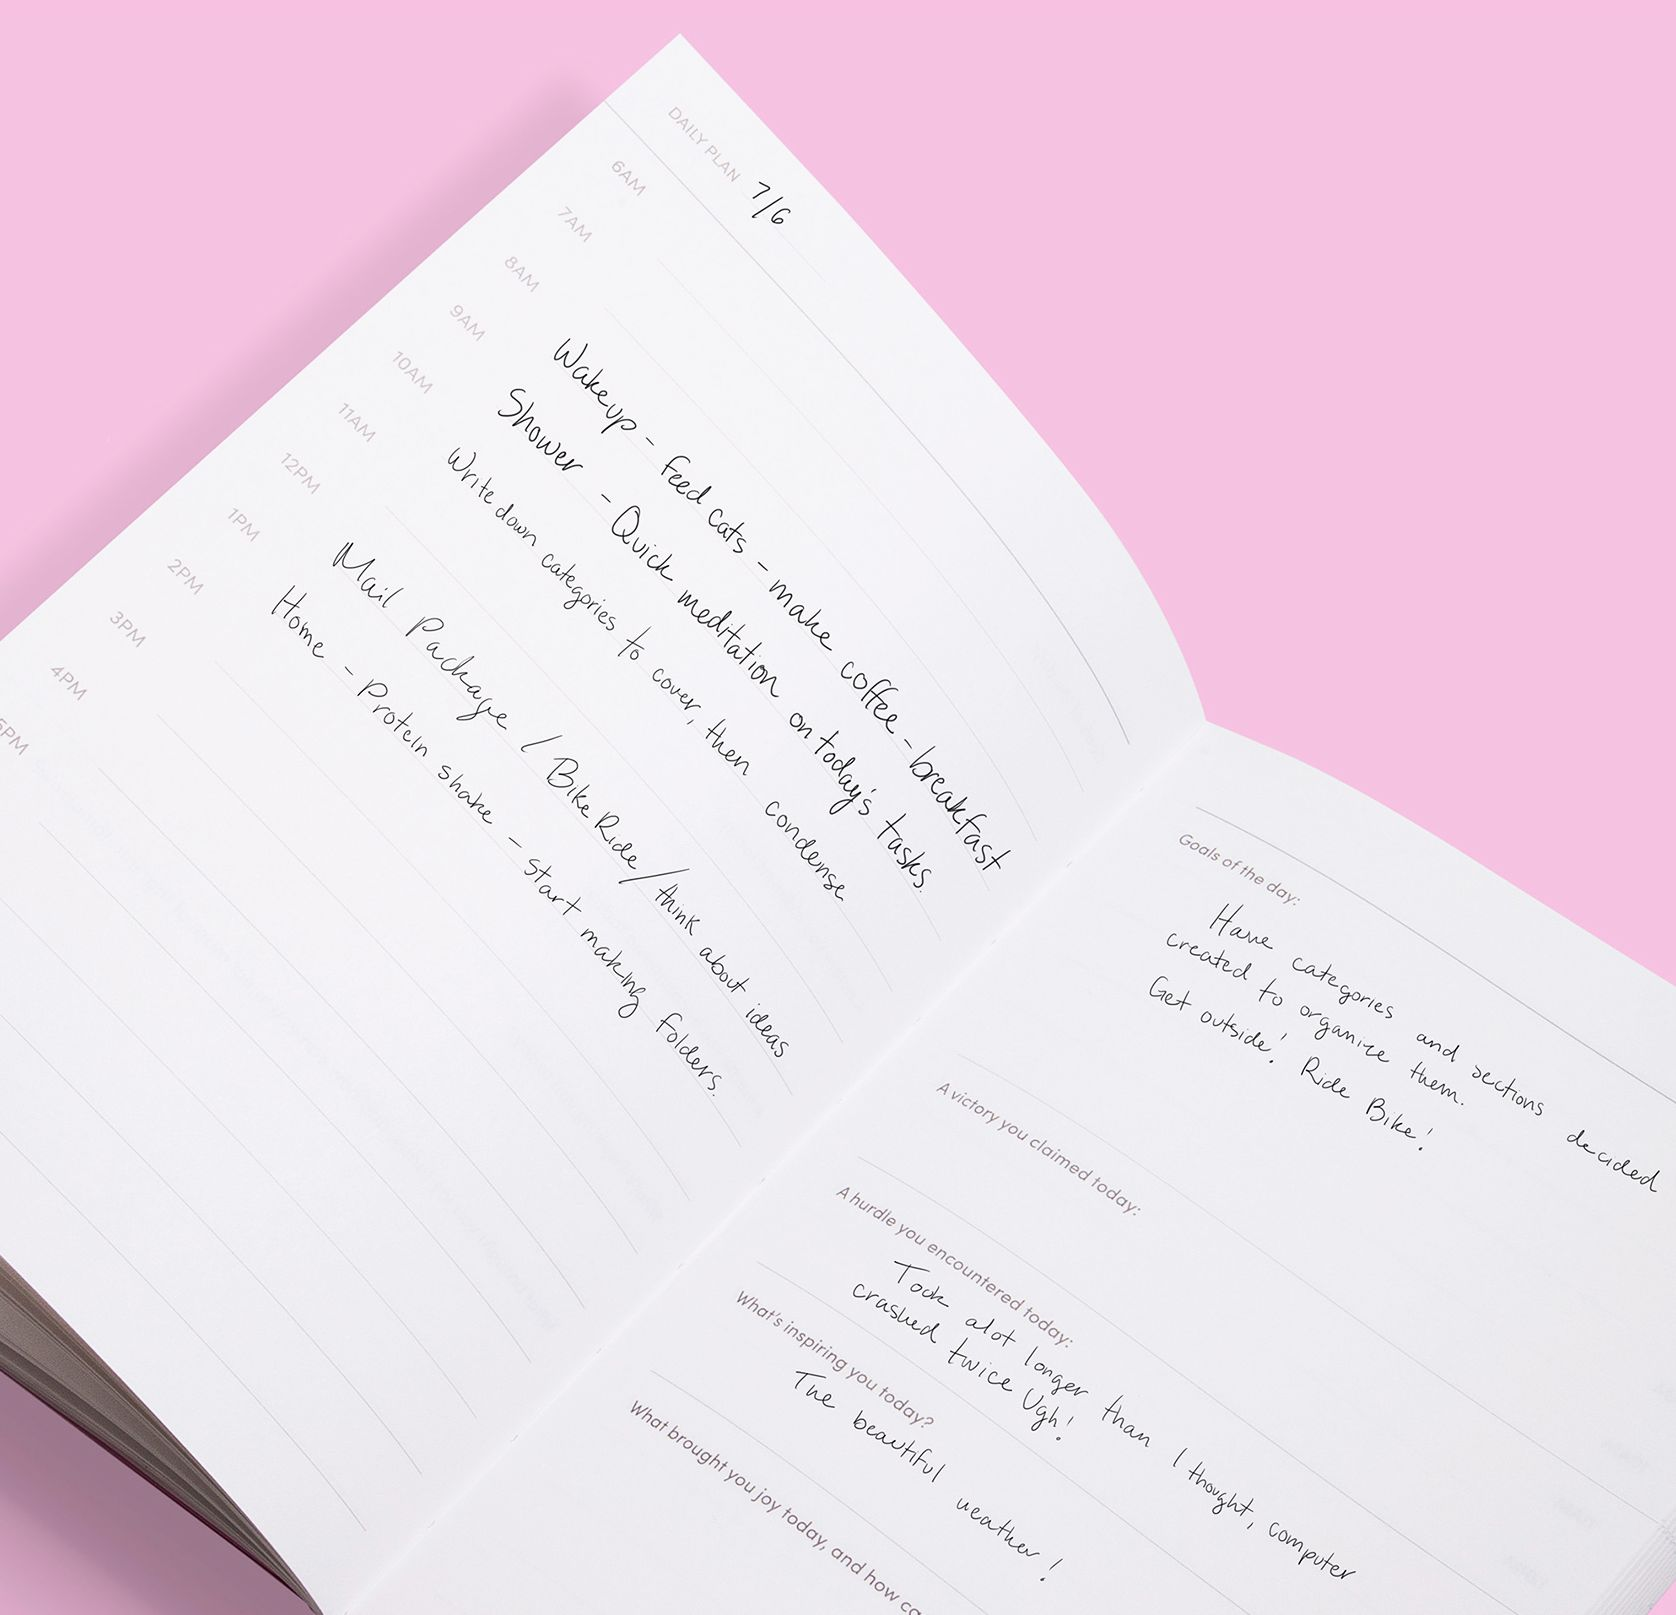 DAILY PLAN 7/6
6AM
7AM
8AM Wakeup - feed cats - make coffee - breakfast
9AM Shower - Quick meditation on today's tasks.
10AM Write down categories to cover, then condense
11AM
12PM Mail Package / Bike Ride / think about ideas
1PM Home - Protein shake - start making folders.
2PM
3PM
4PM
5PM
Goals of the day:
Have categories and sections decided
created to organize them.
Get outside! Ride Bike!
A victory you claimed today:
A hurdle you encountered today:
Took alot longer than I thought, computer
crashed twice Ugh!
What's inspiring you today?
The beautiful weather!
What brought you joy today, and how ca